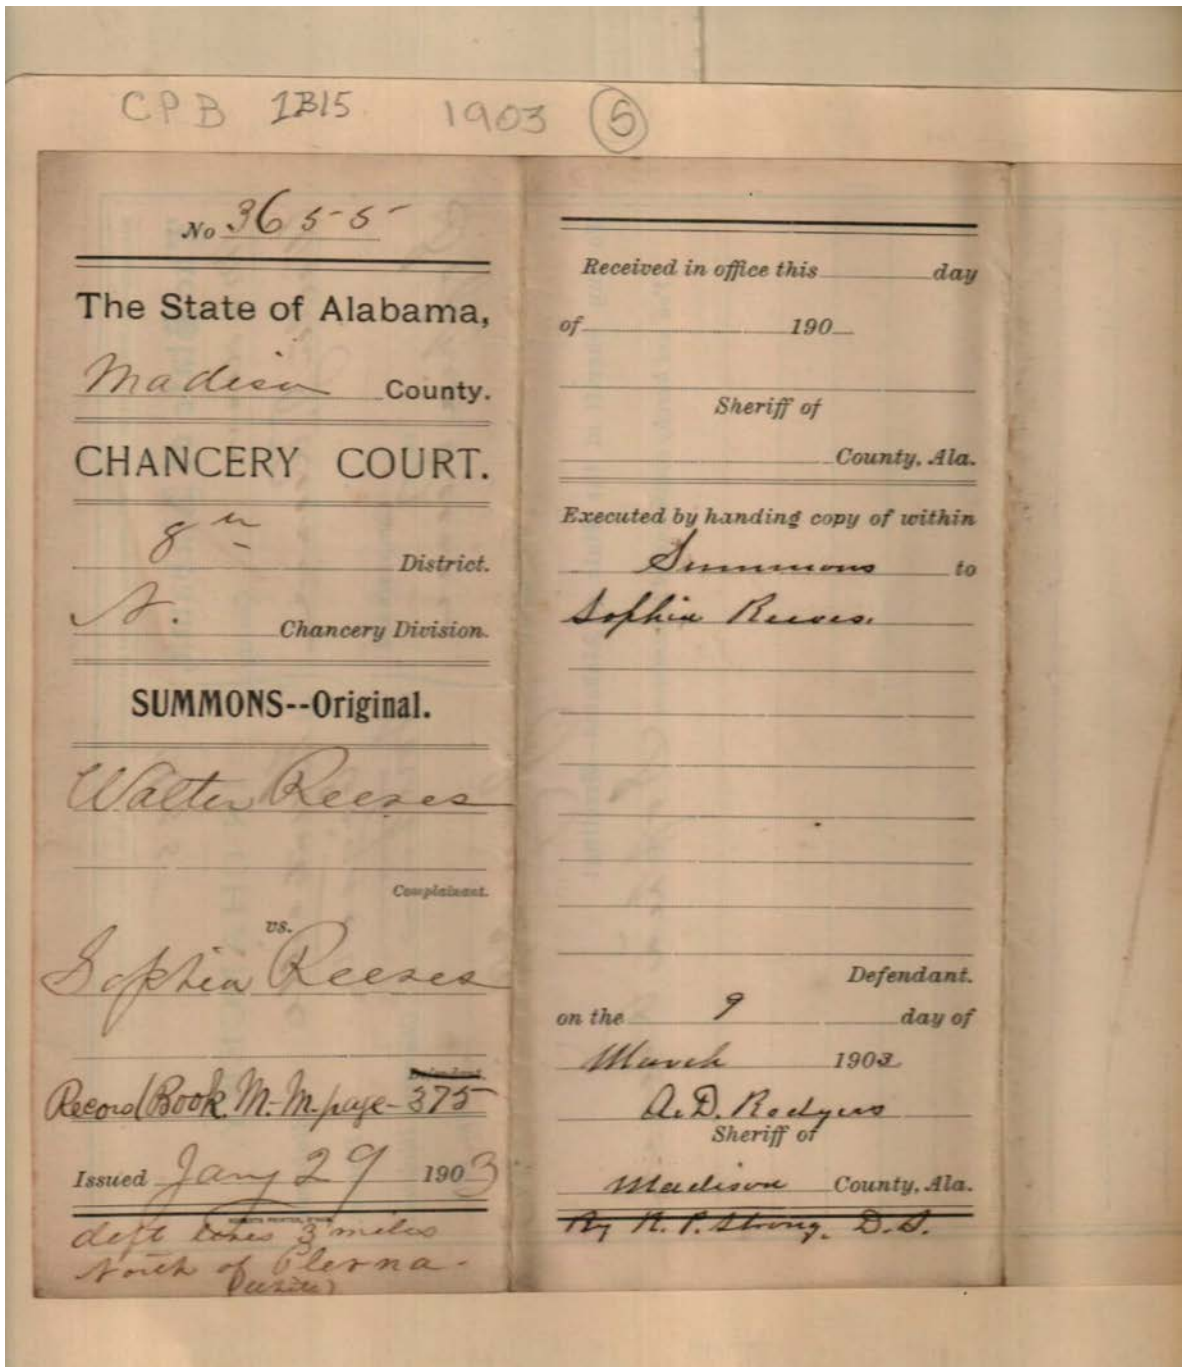 CPB 1B15 1903 5
No 3655
The State of Alabama,
Madison County.
CHANCERY COURT.
8th
District.
N. Chancery Division.
SUMMONS--Original.
Walter Reeves
Complainant.
vs.
Sophia Reeves
Defendant.
Record Book M.M. page - 375
Issued Jany 29 1903
deft lives 3 miles
North of Plevna -
(white)
Received in office this day
of 190
Sheriff of
County, Ala.
Executed by handing copy of within
Summons to
Sophia Reeves.
Defendant.
on the 9 day of
March 1903
A. D. Rodgers
Sheriff of
Madison County, Ala.
By N. P. Strong, D. S.